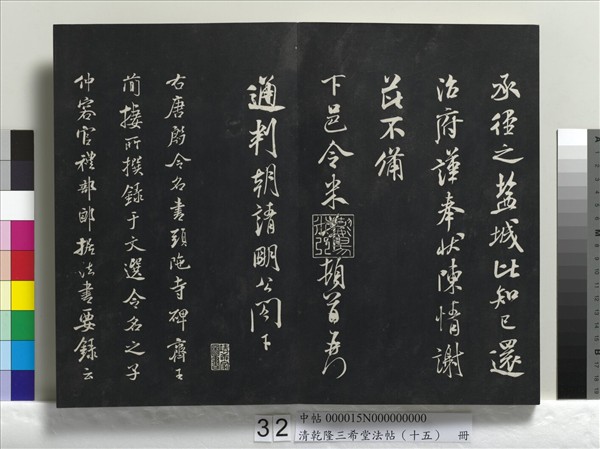 丞徑之盐城比知已還
治府謹奉狀陳情謝
茲不備
下邑令米
頓首再
通判朝請明公閤下
右唐殷令名書頭陁寺碑齊王
簡棲所撰錄于文選令名之子
仲容官禮部郎據法書要錄云
32
中帖 000015N000000000
清乾隆三希堂法帖(十五) 冊